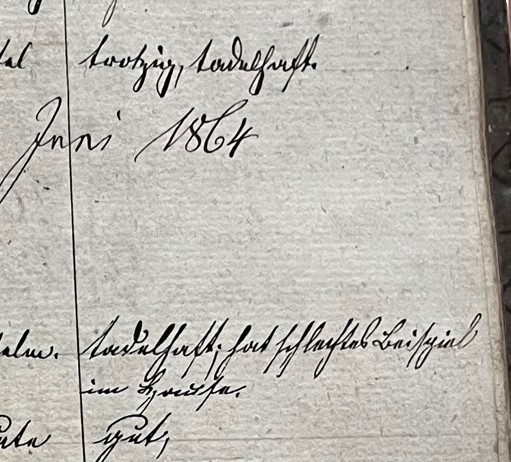 tel trotzig, tadelhaft.
Juni 1864
elm. tadelhaft; hat schlechtes Beispiel
im Hause.
gut,